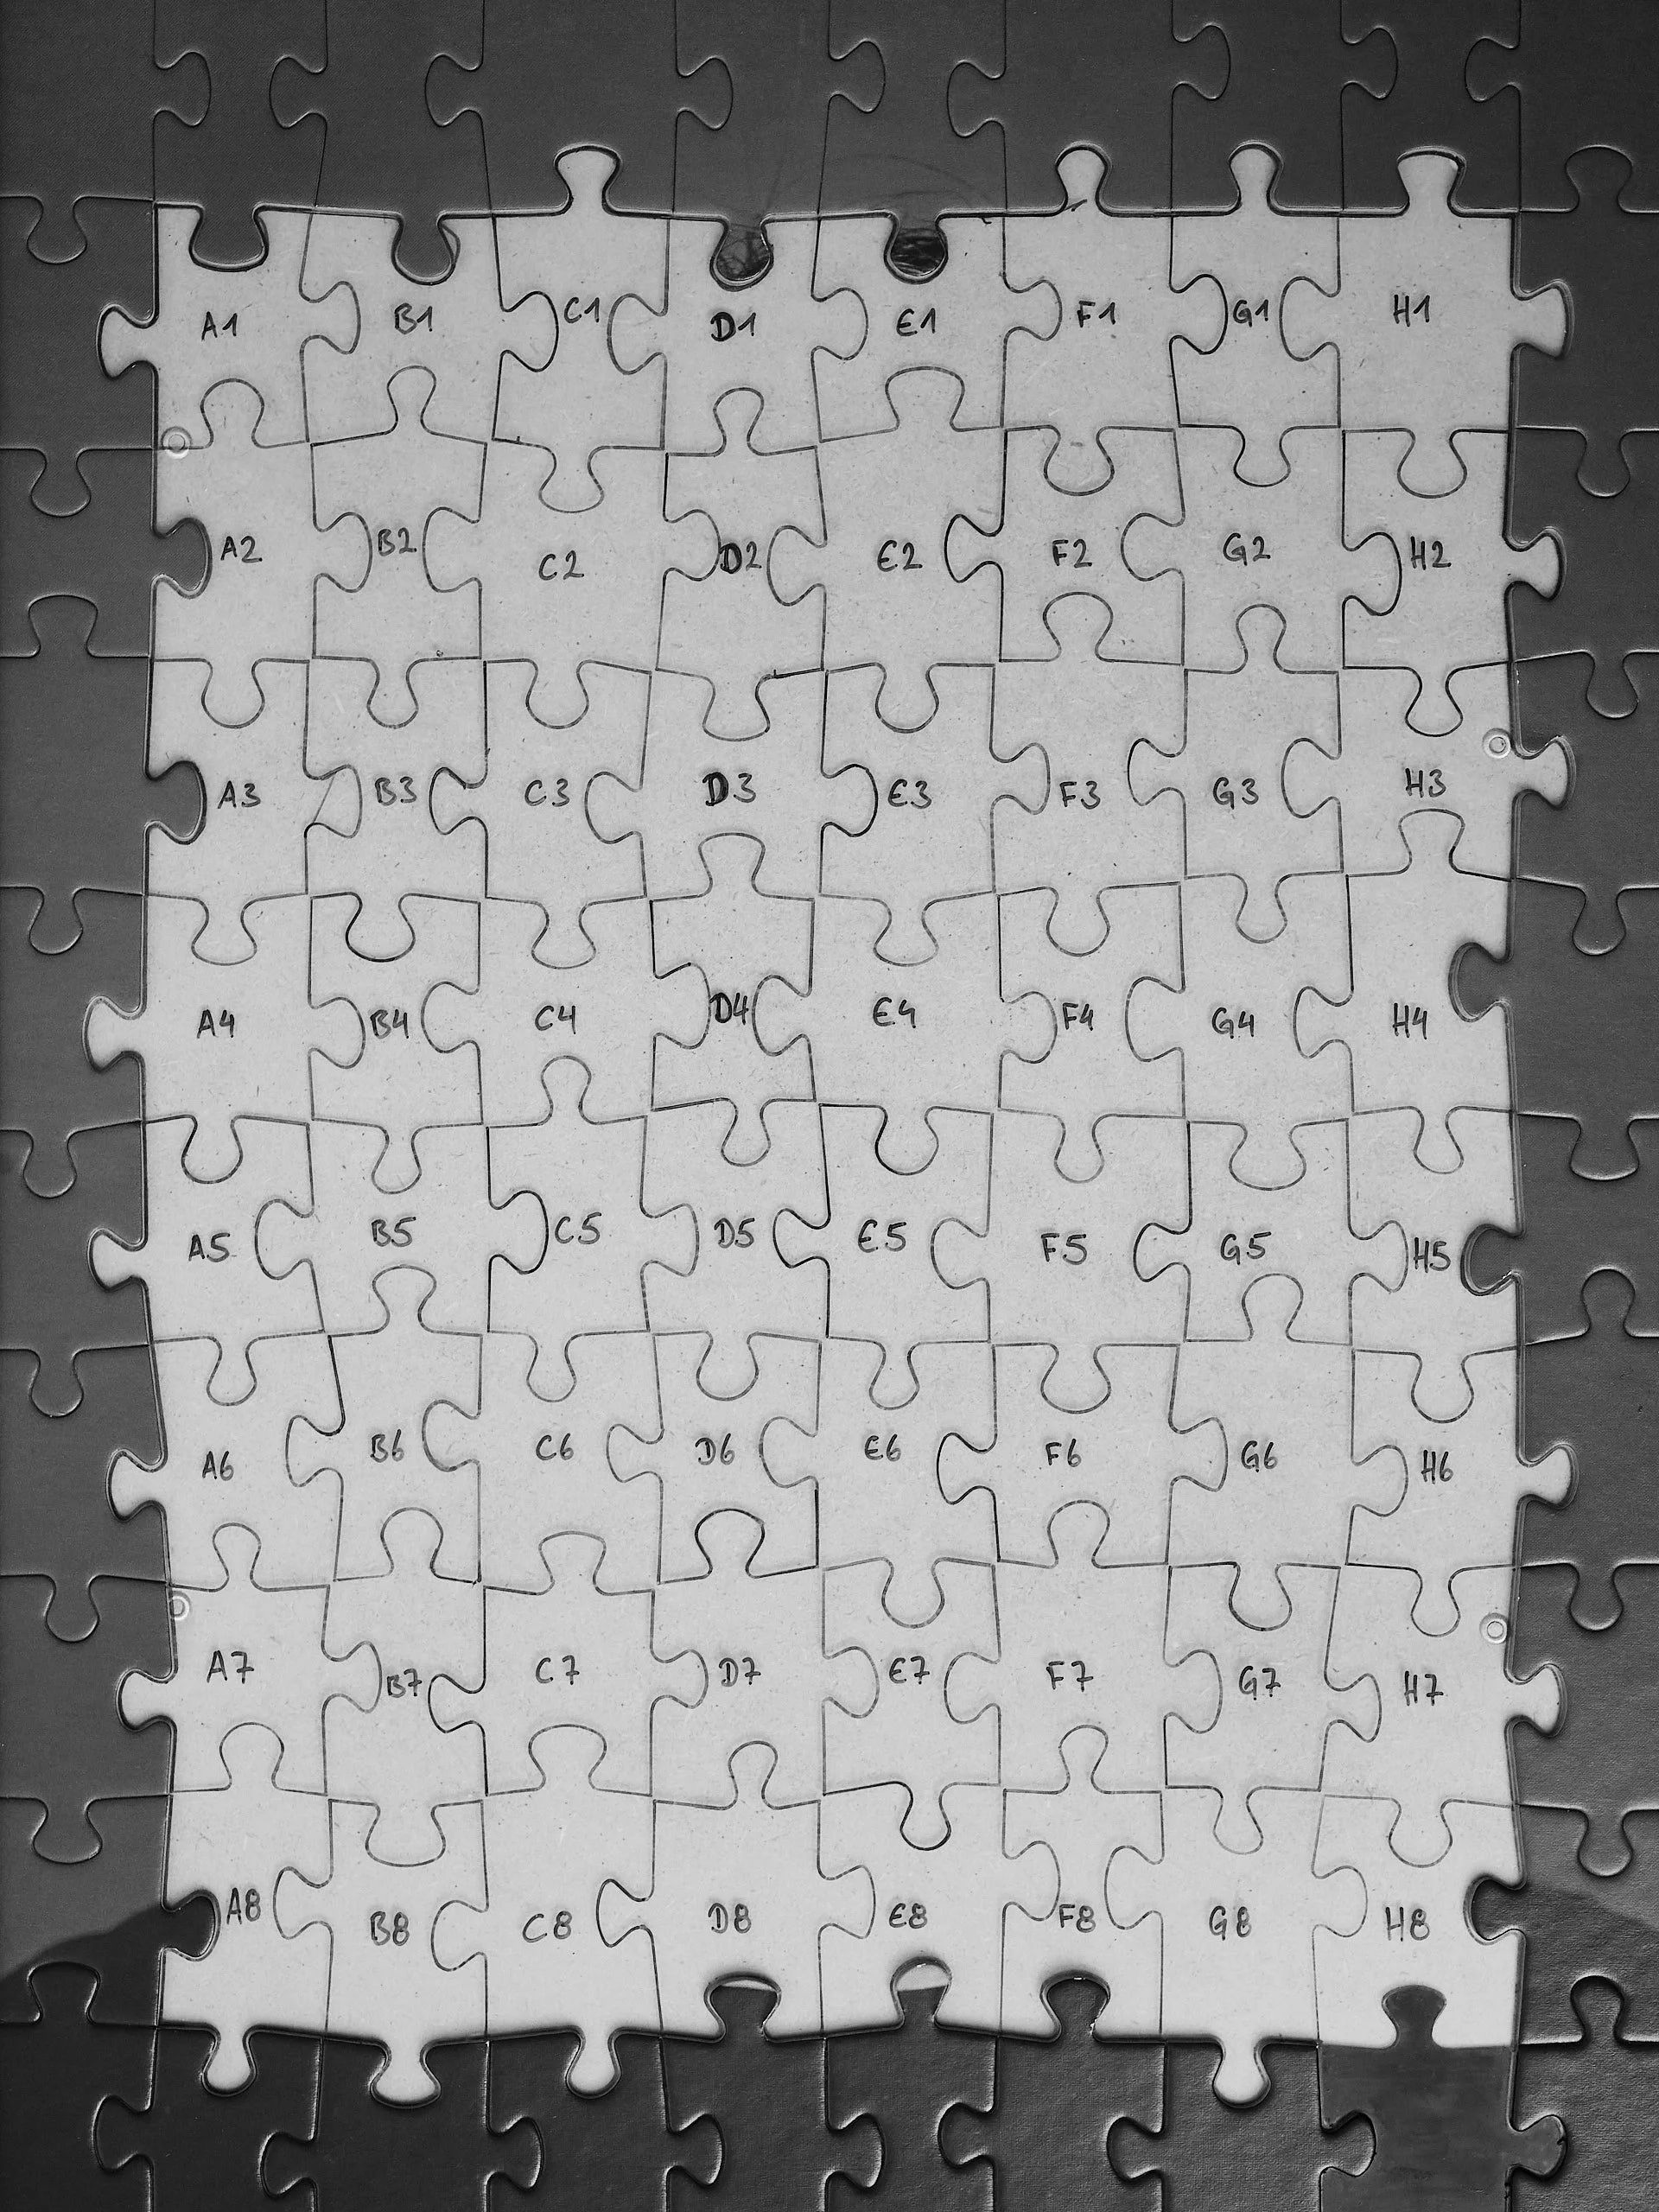 A1 B1 C1 D1 E1 F1 G1 H1
A2 B2 C2 D2 E2 F2 G2 H2
A3 B3 C3 D3 E3 F3 G3 H3
A4 B4 C4 D4 E4 F4 G4 H4
A5 B5 C5 D5 E5 F5 G5 H5
A6 B6 C6 D6 E6 F6 G6 H6
A7 B7 C7 D7 E7 F7 G7 H7
A8 B8 C8 D8 E8 F8 G8 H8